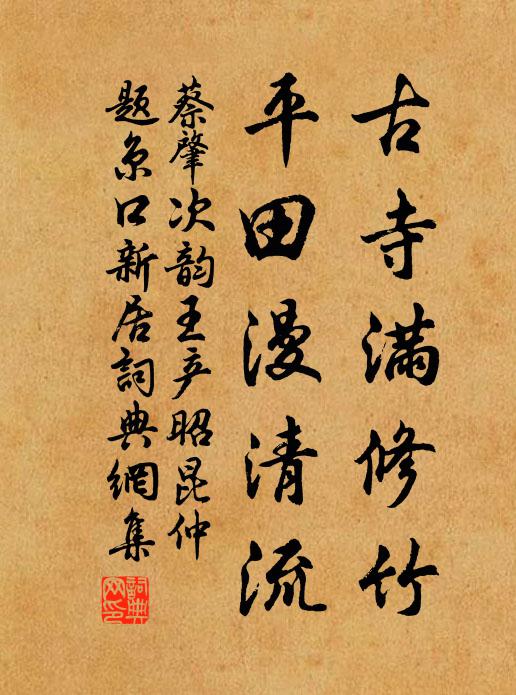 古寺滿修竹
平田漫清流
蔡肇次韵王彦昭昆仲
题京口新居詞典網集
詞典网印